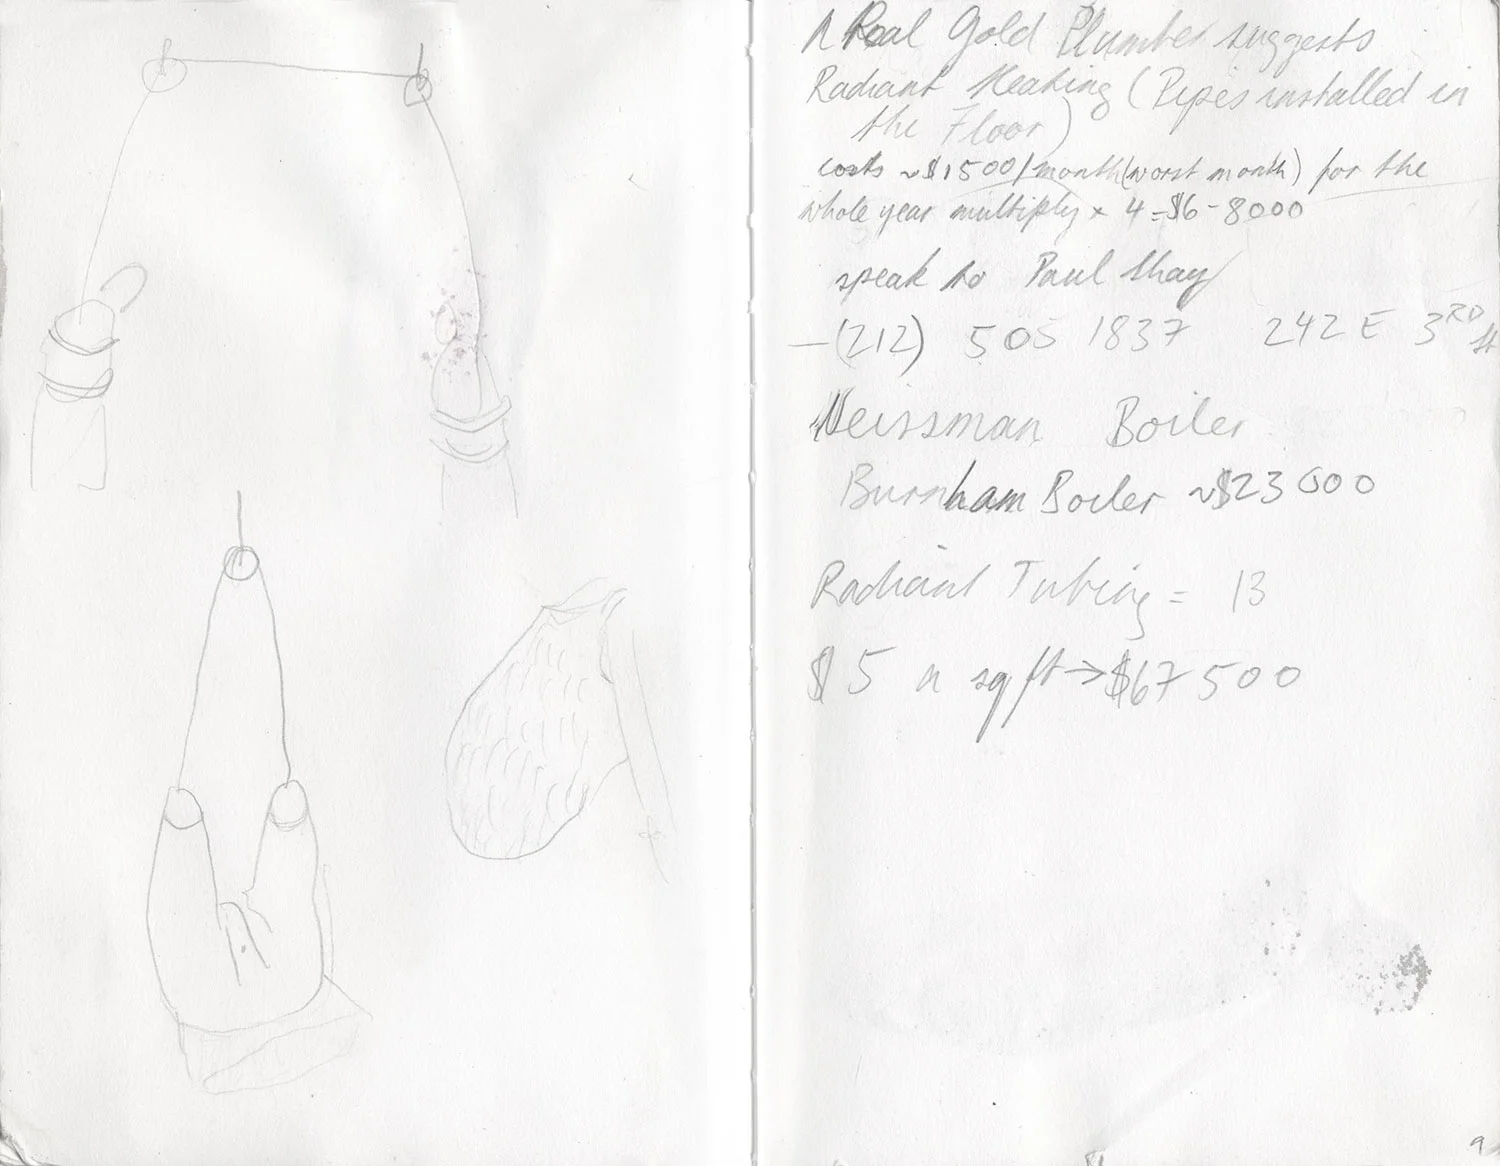 A Real Gold Plumber suggests
Radiant Heating (Pipes installed in
the Floor)
costs ~$1500/month (worst month) for the
whole year multiply x 4 = $6-8000
speak to Paul Shay
—(212) 505 1837 242 E 3RD St
Weissman Boiler
Burnham Boiler ~$23 000
Radiant Tubing = 13
$5 a sq ft → $67 500
9